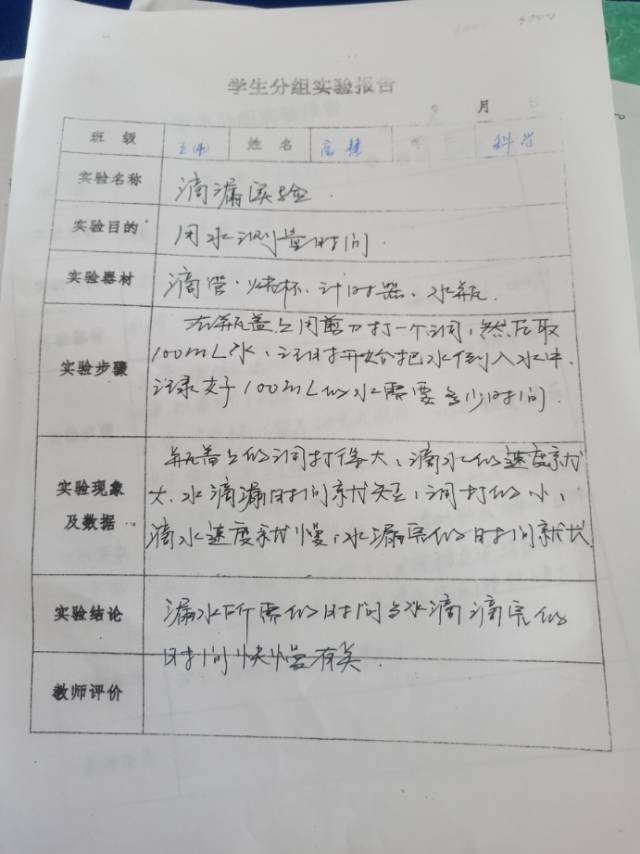 学生分组实验报告
月
班级 五(4) 姓名 高慧 科学
实验名称 滴漏实验.
实验目的 用水测量时间.
实验器材 滴管、烧杯、计时器、水瓶.
实验步骤
在瓶盖上用剪刀打一个洞,然后取
100mL水,计时开始把水倒入水中.
记录好100mL的水需要多少时间.
实验现象及数据
瓶盖上的洞打得大,滴水的速度就
大.水滴漏时间就短;洞打的小,
滴水速度就慢,水漏完的时间就长
实验结论
漏水所需的时间与水滴滴完的
时间快慢有关.
教师评价